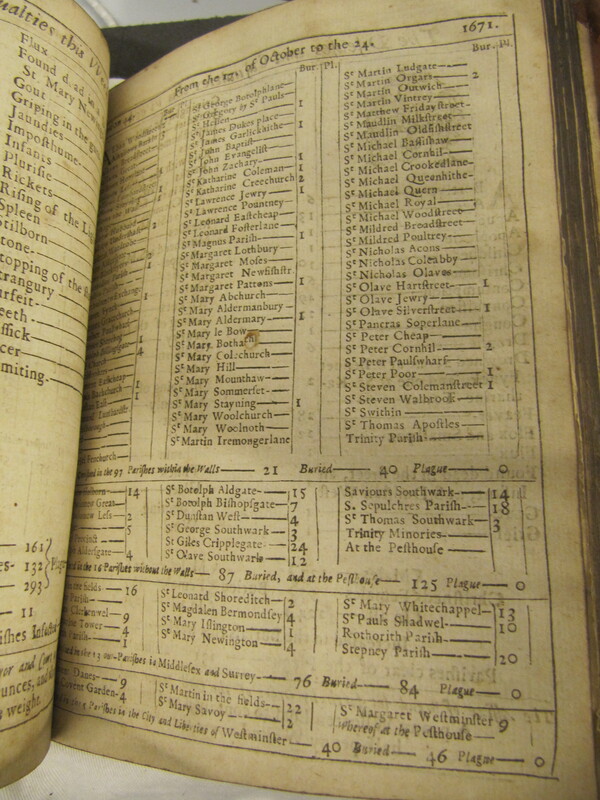 ualties this W
Flux
Found dead in
St. Mary New
Gout
Griping in the gu
Jaundies
Imposthume
Infants
Plurisie
Rickets
Rising of the L
Spleen
tilborn
tone
topping of the
trangury
urfeit
eeth
issick
cer
miting
161
es- 132
293
11
ishes Infected
weight.
1671.
From the 17. of October to the 24.
Bur. Pl.
Bur. Pl.
St George Botolphlane
St Gregory by St Pauls
St Hellen 1
St James Dukes place
St James Garlickhithe 1
St John Baptist
St John Evangelist
St John Zachary 1
St Katharine Coleman 1
St Katharine Creechurch 2
St Lawrence Jewry 1
St Lawrence Pountney
St Leonard Eastcheap
St Leonard Fosterlane
St Magnus Parish 1
St Margaret Lothbury
St Margaret Moses
St Margaret Newfishstr.
St Margaret Pattons 1
St Mary Abchurch
St Mary Aldermanbury
St Mary Aldermary 1
St Mary le Bow
St Mary Botha
St Mary Colechurch
St Mary Hill
St Mary Mounthaw
St Mary Sommerset
St Mary Stayning 1
St Mary Woolchurch
St Mary Woolnoth
St Martin Iremongerlane
St Martin Ludgate
St Martin Orgars 2
St Martin Outwich
St Martin Vintrey
St Matthew Fridaystreet
St Maudlin Milkstreet
St Maudlin Oldfishstreet
St Michael Bassishaw
St Michael Cornhil
St Michael Crookedlane
St Michael Queenhithe
St Michael Quern
St Michael Royal
St Michael Woodstreet
St Mildred Broadstreet
St Mildred Poultrey
St Nicholas Acons
St Nicholas Coleabby
St Nicholas Olaves
St Olave Hartstreet 1
St Olave Jewry
St Olave Silverstreet 1
St Pancras Soperlane
St Peter Cheap
St Peter Cornhil 2
St Peter Paulswharf
St Peter Poor 1
St Steven Colemanstreet 1
St Steven Walbrook
St Swithin
St Thomas Apostles
Trinity Parish
in the 97 Parishes within the Walls 21 Buried 40 Plague 0
14
2
5
4
St Botolph Aldgate 15
St Botolph Bishopsgate 7
St Dunstan West 4
St George Southwark 3
St Giles Cripplegate 24
St Olave Southwark 12
Saviours Southwark 14
S. Sepulchres Parish 18
St Thomas Southwark 3
Trinity Minories
At the Pesthouse
in the 16 Parishes without the Walls 87 Buried, and at the Pesthouse 125 Plague 0
in the fields 16
Parish
Clerkenwel 9
Tower 4
Parish 1
St Leonard Shoreditch 2
St Magdalen Bermondsey 4
St Mary Islington 1
St Mary Newington 4
St Mary Whitechappel 13
St Pauls Shadwel 10
Rothorith Parish
Stepney Parish 20
in the 13 out-Parishes in Middlesex and Surrey 76 Buried 84 Plague 0
Danes 9
Covent Garden 4
St Martin in the fields 22
St Mary Savoy 2
St Margaret Westminster 9
Whereof at the Pesthouse
the 5 Parishes in the City and Liberties of Westminster 40 Buried 46 Plague 0